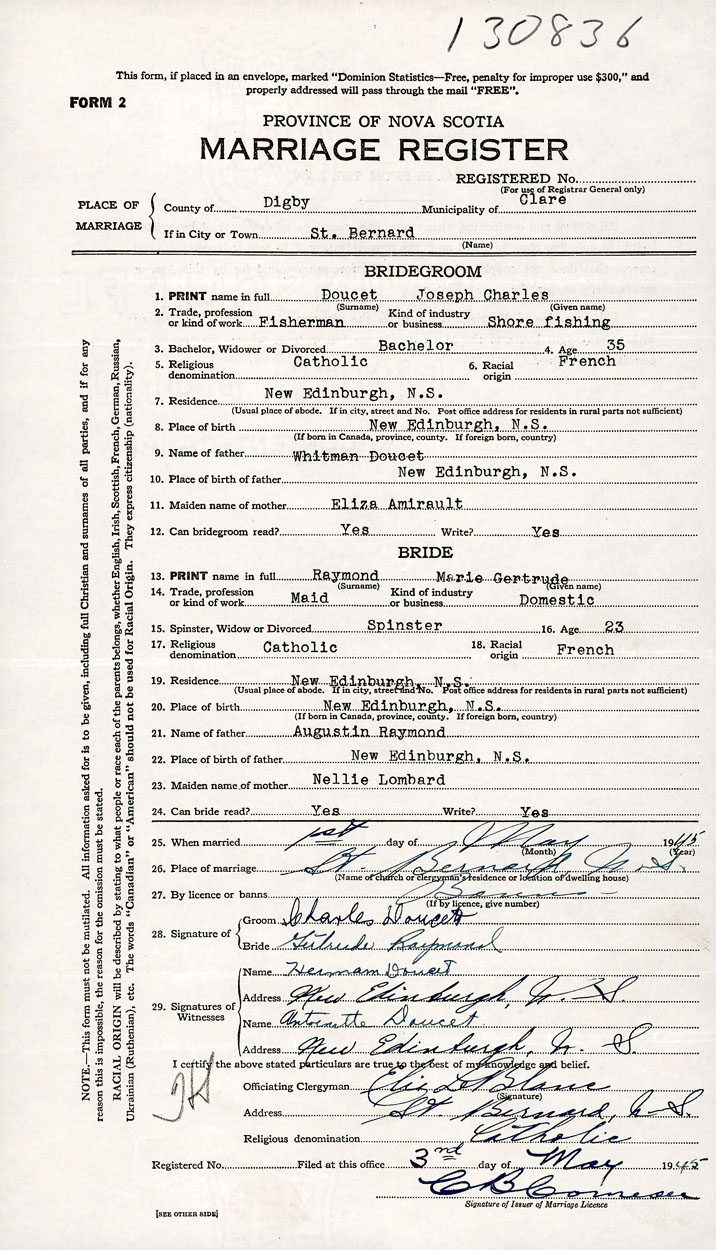 130836
This form, if placed in an envelope, marked "Dominion Statistics—Free, penalty for improper use $300," and
properly addressed will pass through the mail "FREE".
FORM 2
PROVINCE OF NOVA SCOTIA
MARRIAGE REGISTER
REGISTERED No.
(For use of Registrar General only)
PLACE OF MARRIAGE
County of Digby Municipality of Clare
If in City or Town St. Bernard
(Name)
BRIDEGROOM
1. PRINT name in full Doucet Joseph Charles
(Surname) (Given name)
2. Trade, profession or kind of work Fisherman Kind of industry or business Shore fishing
3. Bachelor, Widower or Divorced Bachelor 4. Age 35
5. Religious denomination Catholic 6. Racial origin French
7. Residence New Edinburgh, N.S.
(Usual place of abode. If in city, street and No. Post office address for residents in rural parts not sufficient)
8. Place of birth New Edinburgh, N.S.
(If born in Canada, province, county. If foreign born, country)
9. Name of father Whitman Doucet
10. Place of birth of father New Edinburgh, N.S.
11. Maiden name of mother Eliza Amirault
12. Can bridegroom read? Yes Write? Yes
BRIDE
13. PRINT name in full Raymond Marie Gertrude
(Surname) (Given name)
14. Trade, profession or kind of work Maid Kind of industry or business Domestic
15. Spinster, Widow or Divorced Spinster 16. Age 23
17. Religious denomination Catholic 18. Racial origin French
19. Residence New Edinburgh, N.S.
(Usual place of abode. If in city, street and No. Post office address for residents in rural parts not sufficient)
20. Place of birth New Edinburgh, N.S.
(If born in Canada, province, county. If foreign born, country)
21. Name of father Augustin Raymond
22. Place of birth of father New Edinburgh, N.S.
23. Maiden name of mother Nellie Lombard
24. Can bride read? Yes Write? Yes
25. When married 1st day of May 1945
(Month) (Year)
26. Place of marriage St. Bernard, N.S.
(Name of church or clergyman's residence or location of dwelling house)
27. By licence or banns Banns
(If by licence, give number)
28. Signature of
Groom Charles Doucet
Bride Gertrude Raymond
29. Signatures of Witnesses
Name Hermam Doucet
Address New Edinburgh, N. S.
Name Antoinette Doucet
Address New Edinburgh, N. S.
I certify the above stated particulars are true to the best of my knowledge and belief.
Officiating Clergyman Elie LeBlanc
(Signature)
Address St. Bernard, N-S.
Religious denomination Catholic
Registered No. Filed at this office 3nd day of May 1945
C B Comeau
Signature of Issuer of Marriage Licence
[SEE OTHER SIDE]
NOTE.—This form must not be mutilated. All information asked for is to be given, including full Christian and surnames of all parties, and if for any
reason this is impossible, the reason for the omission must be stated.
RACIAL ORIGIN will be described by stating to what people or race each of the parents belongs, whether English, Irish, Scottish, French, German, Russian,
Ukrainian (Ruthenian), etc. The words "Canadian" or "American" should not be used for Racial Origin. They express citizenship (nationality).